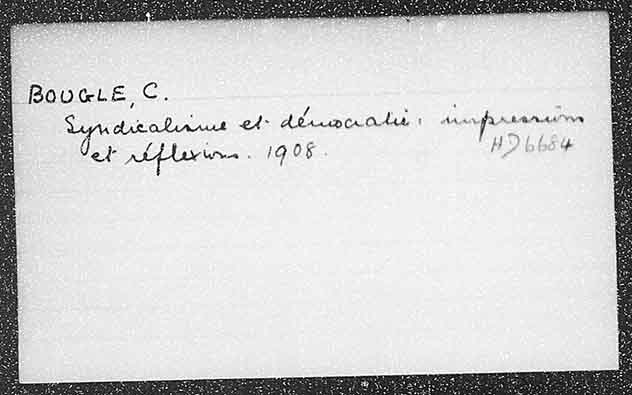 BOUGLE, C.
Syndicalisme et démocratie: impressions
et réflexions. 1908.
HD6684